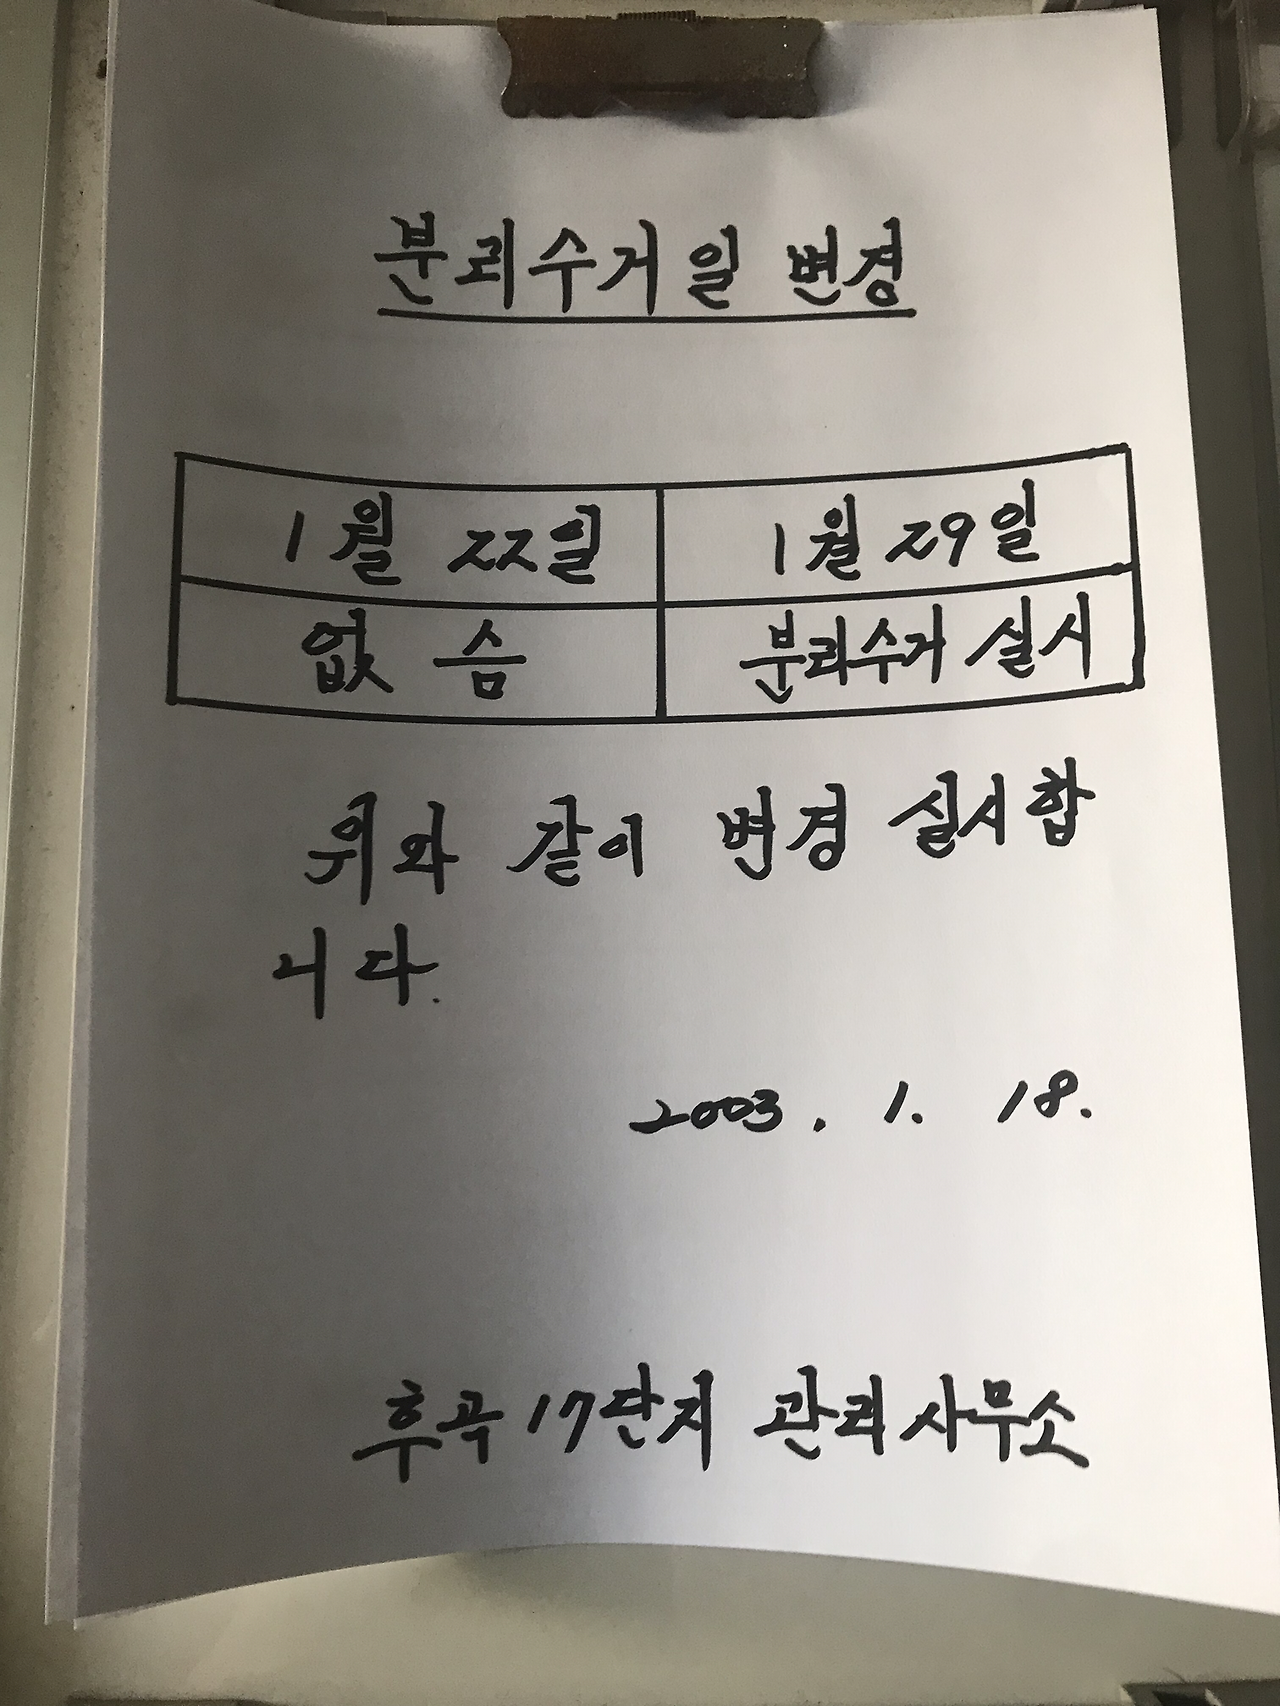 분리수거일 변경
1월 22일 1월 29일
없슴 분리수거 실시
위와 같이 변경 실시합
니다.
2003. 1. 18.
후곡 17단지 관리사무소